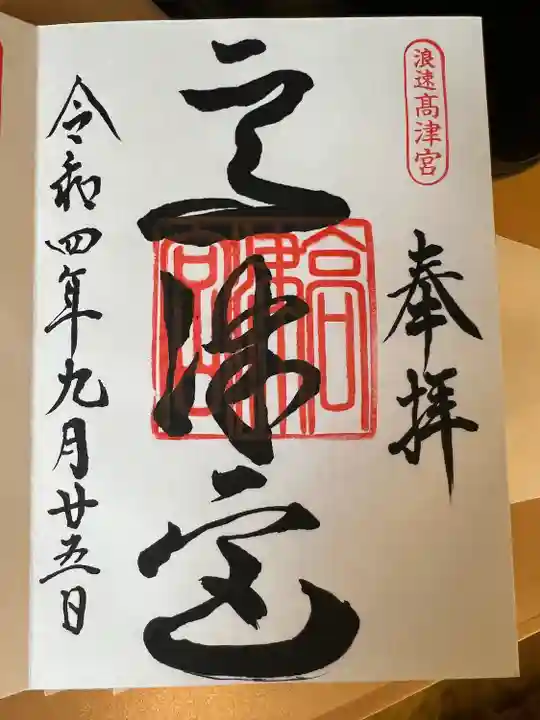 浪速高津宮
奉拝
高津宮
高津宮
令和四年九月廿五日